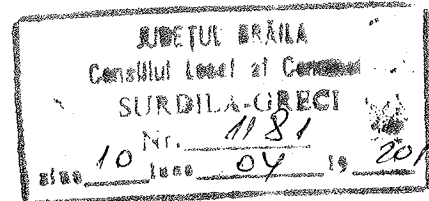 JUDEȚUL BRĂILA
Consiliul Local al Comunei
SURDILA-GRECI
Nr. 1181
ziua 10 luna 04 19 201